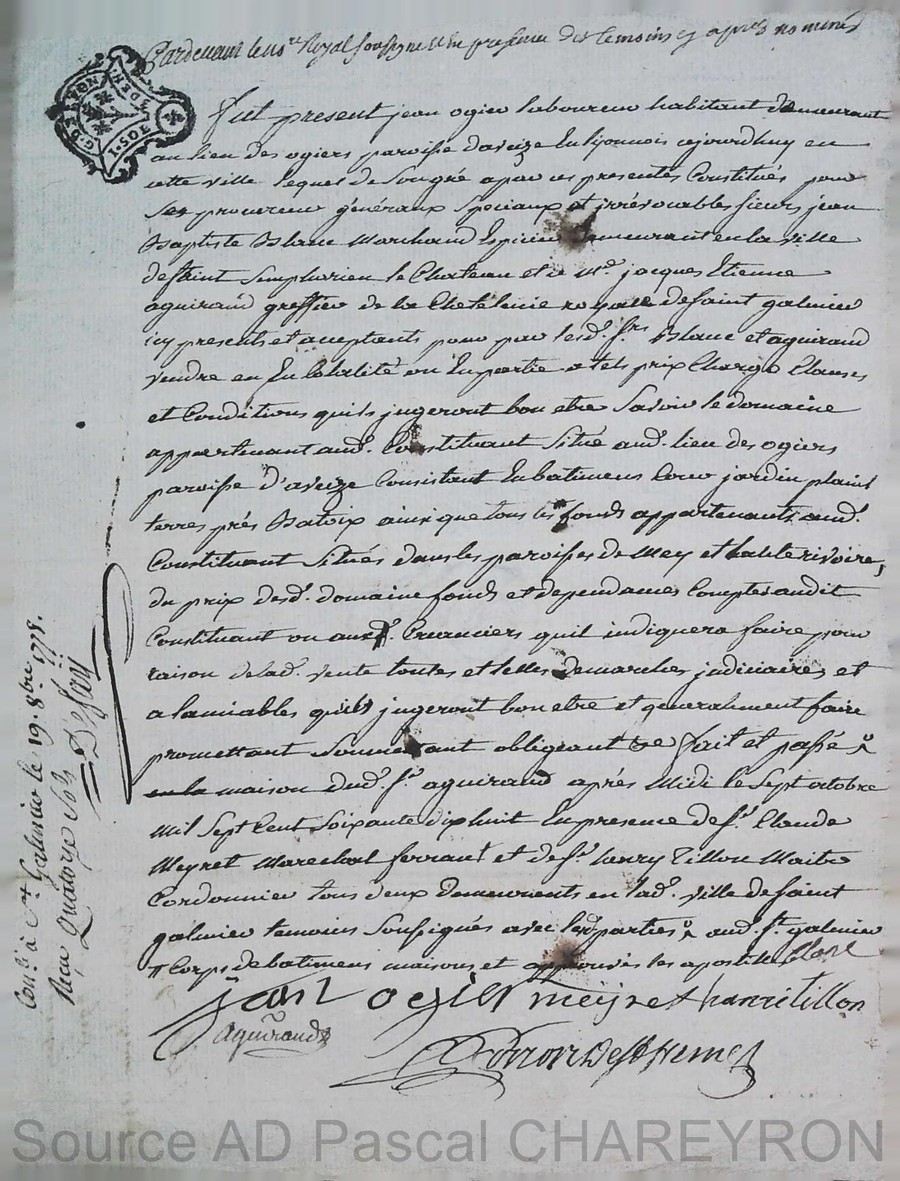 Pardevant le no.re Royal soussigné et en presence des temoins cy apres nommés
G. DE LYON
1. SOL
fut present jean ogier laboureur habitant demeurant
au lieu des ogiers paroisse d'aveize en lyonnois ajourdhuy en
cette ville lequel de son gré a par ces presentes Constitués pour
ses procureur généraux Speciaux et irrévocables sieurs jean
Baptiste Blanc Marchand Epicier demeurant en la ville
de saint Simphorien le Chateau et à M.e jacques Etienne
aguiraud greffier de la Chatelenie royalle de saint galmier
icy presents et aceptants pour par lesd. s.rs Blanc et aguiraud
vendre en En totalité ou En partie a tels prix Charge Clauses
et Conditions quils jugeront bon etre Savoir le domaine
appartenant aud. Constituant Situé aud. lieu des ogiers
paroisse d'aveize Consistant En batimens Cour jardin plaint
terres prés Batoix ainsi que tous les fonds appartenants aud.
Constituant Situés dans les paroisses de Mey et hauterivoire,
du prix desd. domaine fonds et dependances Compter audit
Constituant ou aux Creanciers quil indiquera faire pour
raison de lad. vente toutes et telles demarches judiciaires et
a lamiables quils jugeront bon etre et generalment faire
promettant Soumettant obligeant &e fait et passé
en la maison dud. s.r aguiraud après Midi le Sept octobre
mil Sept Cent Soixante dix huit En presence de s.r Claude
Meyret Marechal ferrant et de s.r henry Tillon Maitre
Cordonnier tous deux demeurants en lad. ville de saint
galmier temoins Soussignés avec lesd parties aud. st. galmier
// Corps de batimens maisons et approuvés les apostilles Blanc
jan ogier meyret hanri tillon
Aguiraud
Con.lé à S.t Galmier le 19. 8bre 1778.
Reçu Quatorze sols
Source AD Pascal CHAREYRON